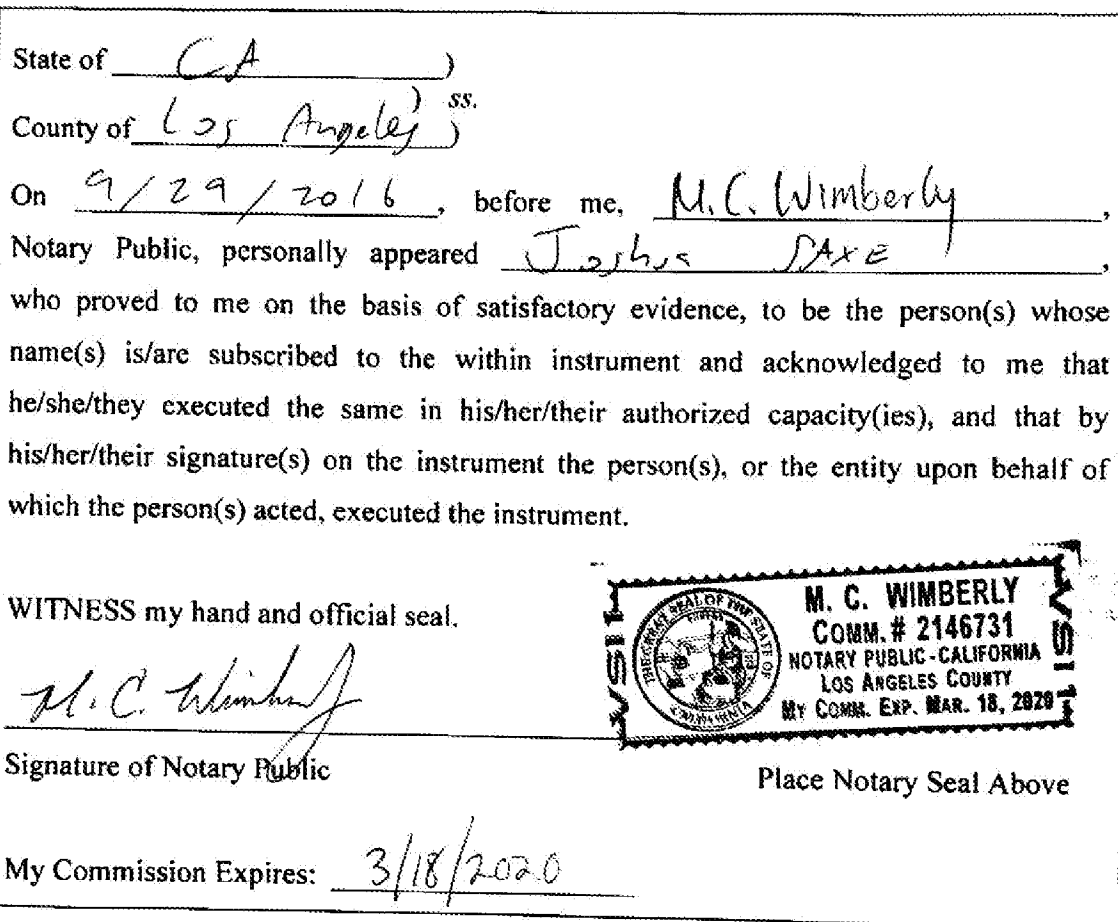 State of CA )
) ss.
County of Los Angeles )
On 9/29/2016, before me, M.C. Wimberly,
Notary Public, personally appeared Joshua SAXE,
who proved to me on the basis of satisfactory evidence, to be the person(s) whose
name(s) is/are subscribed to the within instrument and acknowledged to me that
he/she/they executed the same in his/her/their authorized capacity(ies), and that by
his/her/their signature(s) on the instrument the person(s), or the entity upon behalf of
which the person(s) acted, executed the instrument.
WITNESS my hand and official seal.
M. C. Wimberly
Signature of Notary Public
VSI1
THE GREAT SEAL OF THE STATE OF CALIFORNIA
M. C. WIMBERLY
COMM. # 2146731
NOTARY PUBLIC-CALIFORNIA
LOS ANGELES COUNTY
MY COMM. EXP. MAR. 18, 2020
VSI1
Place Notary Seal Above
My Commission Expires: 3/18/2020